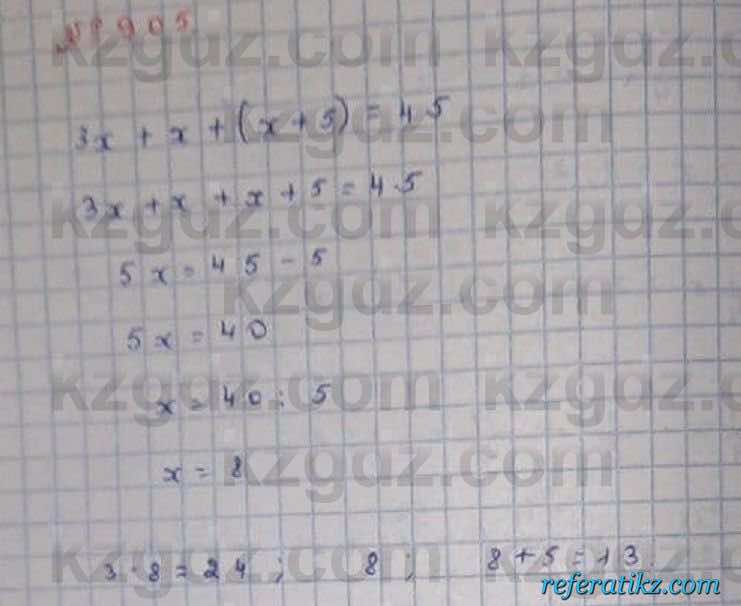 № 905
kzgdz.com
3x + x + (x + 5) = 45
kzgdz.com
3x + x + x + 5 = 45
kzgdz.com
5x = 45 - 5
kzgdz.com
5x = 40
kzgdz.com kzgdz.com
x = 40 : 5
x = 8
kzgdz.com
3 · 8 = 24 ; 8 ; 8 + 5 = 13
kzgdz.com kzgdz.com
referatikz.com